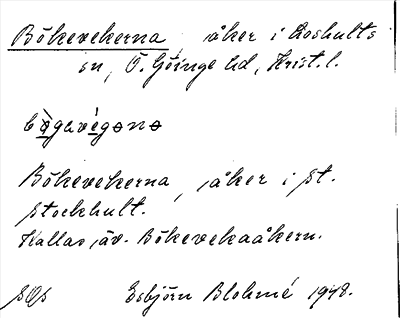 Bökevekerna åker i Loshults
sn, Ö. Göinge hd, Krist. l.
Bökevekerna, åker i St.
Stockhult.
Kallas äv. Bökevekaåkern.
Esbjörn Blohmé 1948.